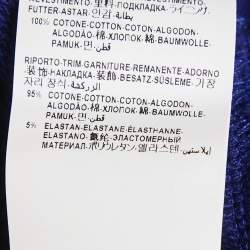 FUTTER-ASTAR-인감-بطانة
100% COTONE-COTTON-COTON-ALGODON-
ALGODÃO-綿-ХЛОПОК-綿-BAUMWOLLE-
PAMUK-면-قطن
RIPORTO-TRIM-GARNITURE-REMANENTE-ADORNO
-装饰-НАКЛАДКА-装飾-BESATZ-SÜSLEME-가장
자리 장식-الزركشة
95% COTONE-COTTON-COTON-ALGODON-
ALGODÃO-綿-ХЛОПОК-綿-BAUMWOLLE-
PAMUK-면-قطن
5% ELASTAN-ELASTANE-ÉLASTHANNE-
ELASTANO-氨纶-ЭЛАСТОМЕРНЫЙ
МАТЕРИАЛ-ポリウレタン-엘라스텐-إيلاستين